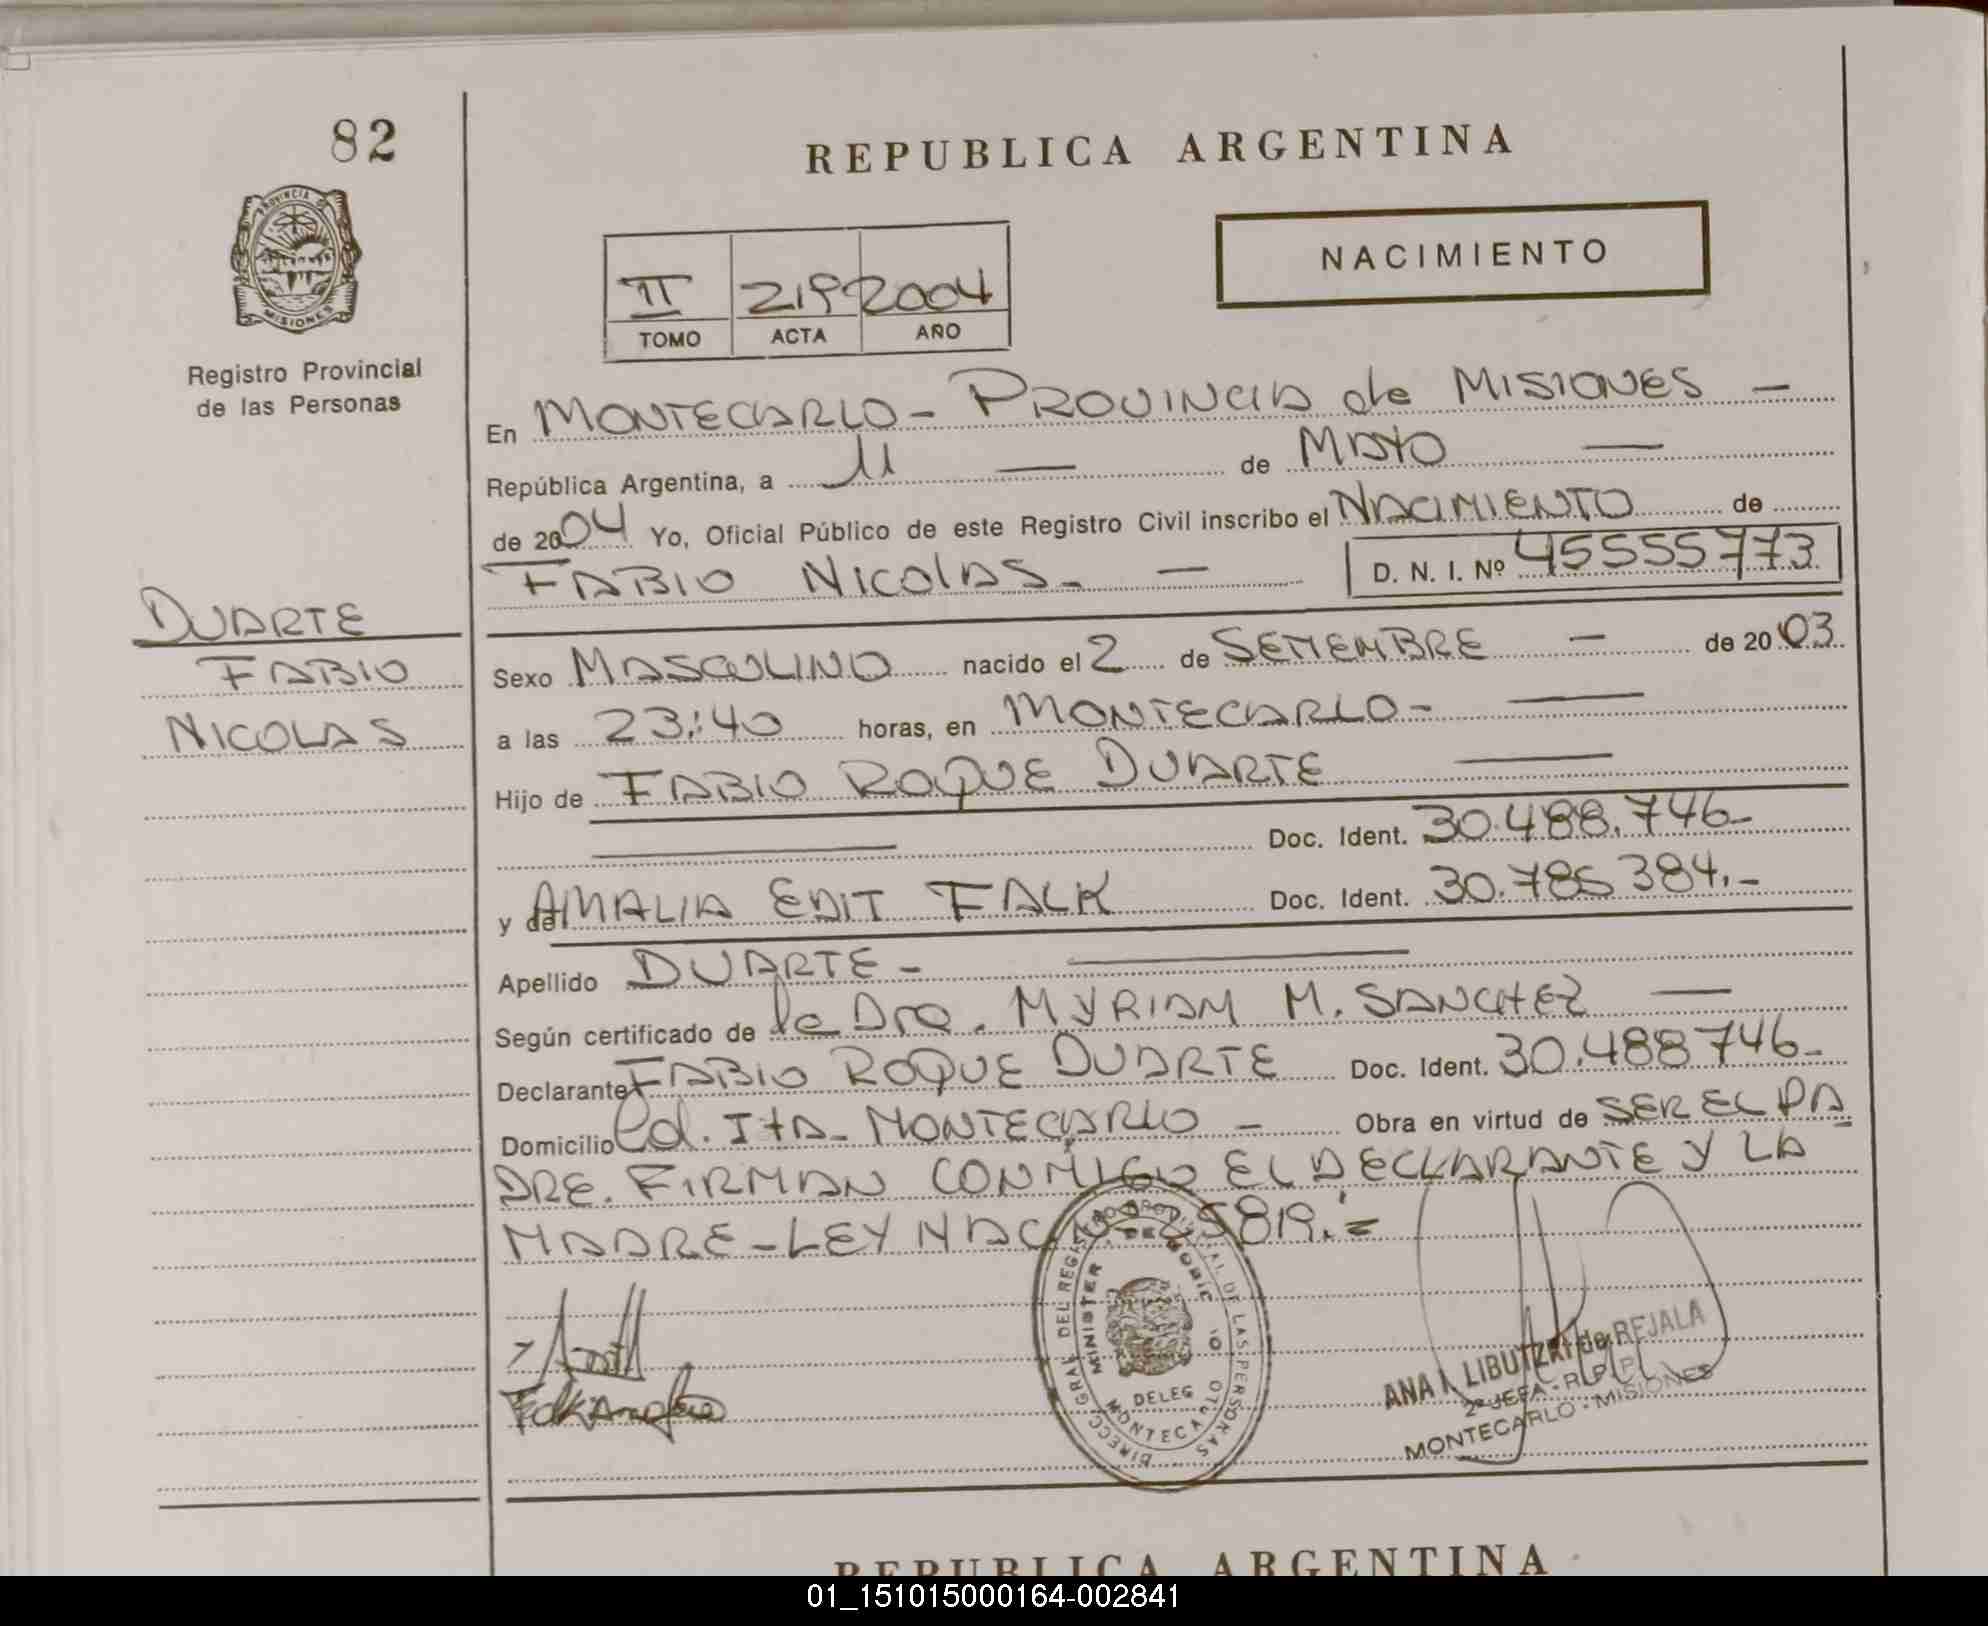 82
REPUBLICA ARGENTINA
PROVINCIA D
MISIONES
NACIMIENTO
II 219 2004
TOMO ACTA AÑO
Registro Provincial
de las Personas
En MONTECARLO - PROVINCIA de MISIONES -
República Argentina, a 11 — de MAYO —
de 2004 Yo, Oficial Público de este Registro Civil inscribo el NACIMIENTO de
FABIO NICOLAS. - — D. N. I. Nº 45555773
DUARTE
FABIO
NICOLAS
Sexo MASCULINO nacido el 2 de SETIEMBRE — de 2003
a las 23:40 horas, en MONTECARLO - —
Hijo de FABIO ROQUE DUARTE —
— Doc. Ident. 30.488.746-
y de AMALIA EDIT FALK Doc. Ident. 30.785384.-
Apellido DUARTE - —
Según certificado de la Dra. MYRIAM M. SANCHEZ —
Declarante FABIO ROQUE DUARTE Doc. Ident. 30.488746-
Domicilio Cd. ITA- MONTECARLO - Obra en virtud de SER EL PA
DRE. FIRMAN CONMIGO EL DECLARANTE Y LA
MADRE - LEY NAC 25819.=
DIRECC GRAL DEL REGISTRO PROVINCIAL DE LAS PERSONAS
MINISTER
DELEG
MONTECARLO
ANA I. LIBUTZKI de REJALA
2ª JEFA - R.P.P.
MONTECARLO - MISIONES
REPUBLICA ARGENTINA
01_151015000164-002841